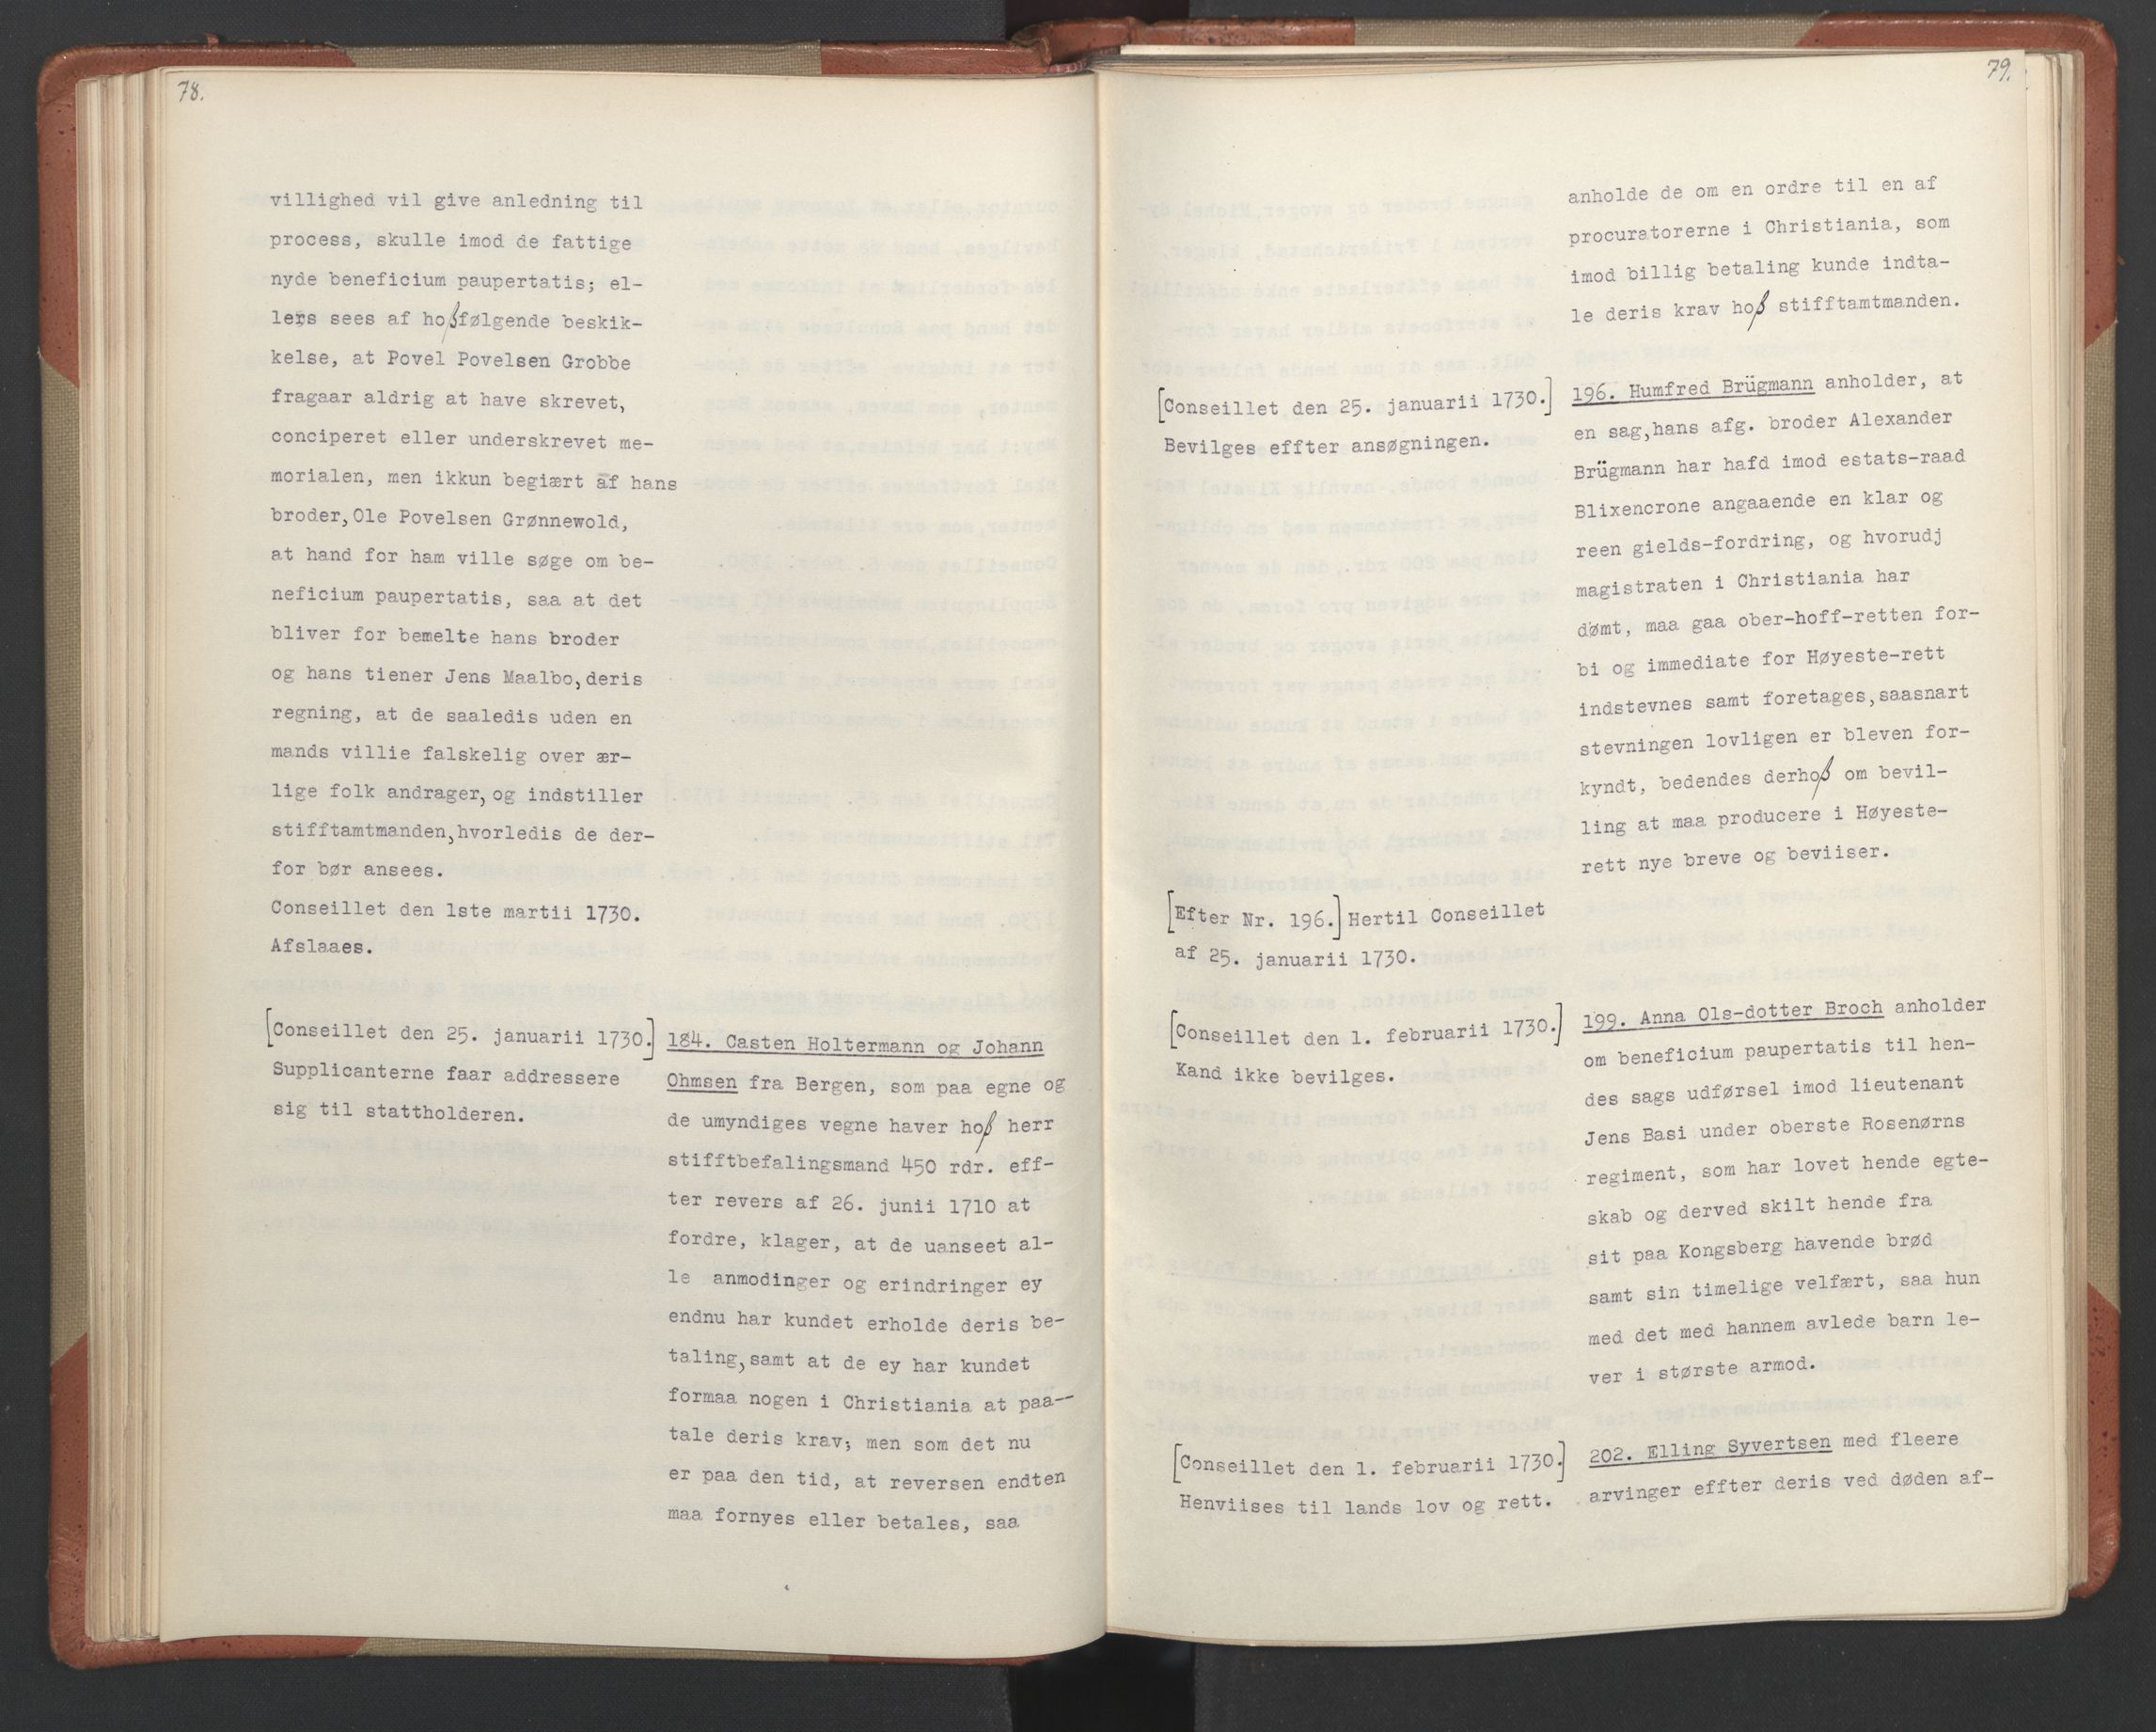 78.
villighed vil give anledning til
process, skulle imod de fattige
nyde beneficium paupertatis; el-
lers sees af hoßfølgende beskik-
kelse, at Povel Povelsen Grobbe
fragaar aldrig at have skrevet,
conciperet eller underskrevet me-
morialen, men ikkun begiært af hans
broder, Ole Povelsen Grønnewold,
at hand for ham ville søge om be-
neficium paupertatis, saa at det
bliver for bemelte hans broder
og hans tiener Jens Maalbo, deris
regning, at de saaledis uden en
mands villie falskelig over ær-
lige folk andrager, og indstiller
stifftamtmanden, hvorledis de der-
for bør ansees.
Conseillet den 1ste martii 1730.
Afslaaes.
[Conseillet den 25. januarii 1730.]
Supplicanterne faar addressere
sig til stattholderen.
184. Casten Holtermann og Johann
Ohmsen fra Bergen, som paa egne og
de umyndiges vegne haver hoß herr
stifftbefalingsmand 450 rdr. eff-
ter revers af 26. junii 1710 at
fordre, klager, at de uanseet al-
le anmodinger og erindringer ey
endnu har kundet erholde deris be-
taling, samt at de ey har kundet
formaa nogen i Christiania at paa--
tale deris krav; men som det nu
er paa den tid, at reversen endten
maa fornyes eller betales, saa
79.
anholde de om en ordre til en af
procuratorerne i Christiania, som
imod billig betaling kunde indta-
le deris krav hoß stifftamtmanden.
[Conseillet den 25. januarii 1730.]
Bevilges effter ansøgningen.
196. Humfred Brügmann anholder, at
en sag, hans afg. broder Alexander
Brügmann har hafd imod estats-raad
Blixencrone angaaende en klar og
reen gields-fordring, og hvorudj
magistraten i Christiania har
dømt, maa gaa ober-hoff-retten for-
bi og immediate for Høyeste-rett
indstevnes samt foretages, saasnart
stevningen lovligen er bleven for-
kyndt, bedendes derhoß om bevil-
ling at maa producere i Høyeste-
rett nye breve og beviiser.
[Efter Nr. 196.] Hertil Conseillet
af 25. januarii 1730.
[Conseillet den 1. februarii 1730.]
Kand ikke bevilges.
199. Anna Ols-dotter Broch anholder
om beneficium paupertatis til hen-
des sags udførsel imod lieutenant
Jens Basi under oberste Rosenørns
regiment, som har lovet hende egte-
skab og derved skilt hende fra
sit paa Kongsberg havende brød
samt sin timelige velfært, saa hun
med det med hannem avlede barn le-
ver i største armod.
[Conseillet den 1. februarii 1730.]
Henviises til lands lov og rett.
202. Elling Syvertsen med fleere
arvinger effter deris ved døden af-